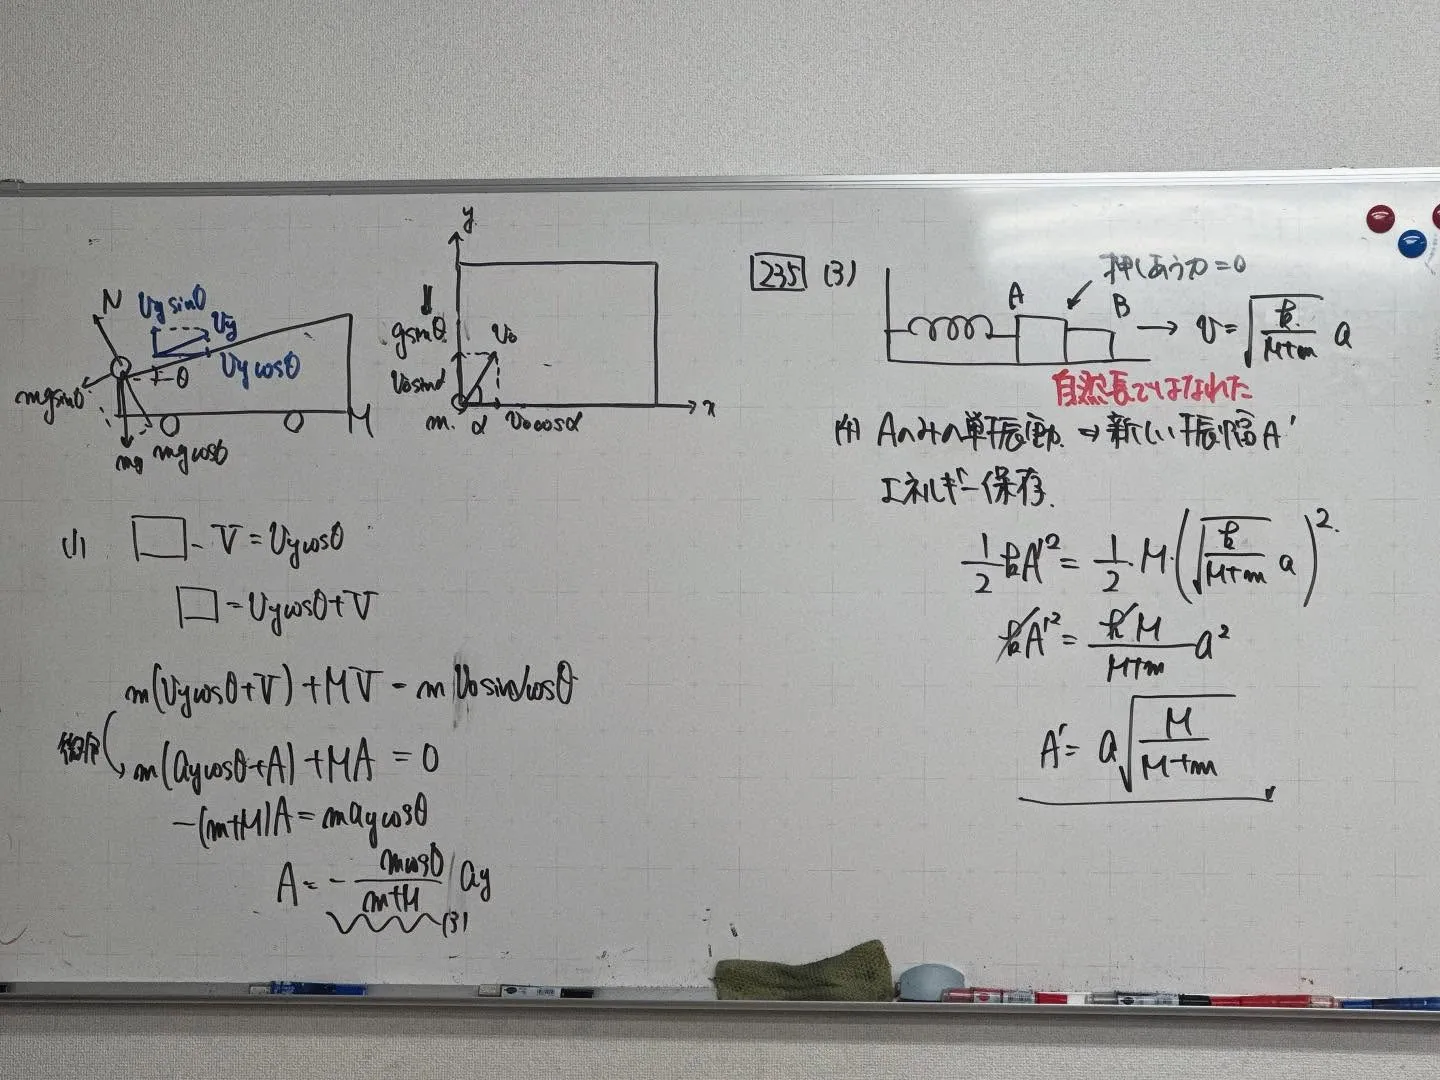 N
Vy sinθ
Vy
Vy cosθ
θ
mg sinθ
mg
mg cosθ
M
y
g sinθ
V₀
V₀sinα
m
α
V₀cosα
x
(1) □ - V = Vy cosθ
□ = Vy cosθ + V
m(Vy cosθ + V) + MV = m V₀ sinα cosθ
微分
m(ay cosθ + A) + MA = 0
-(m+M)A = m ay cosθ
A = - m cosθ / (m+M) ay
(3)
235 (3)
押しあう力 = 0
A
B
v = √(k/(M+m)) a
自然長ではなれた
(4) Aのみの単振動 ⇒ 新しい振幅A'
エネルギー保存
1/2 kA'² = 1/2・M・(√(k/(M+m)) a)²
kA'² = kM/(M+m) a²
A' = a√(M/(M+m))